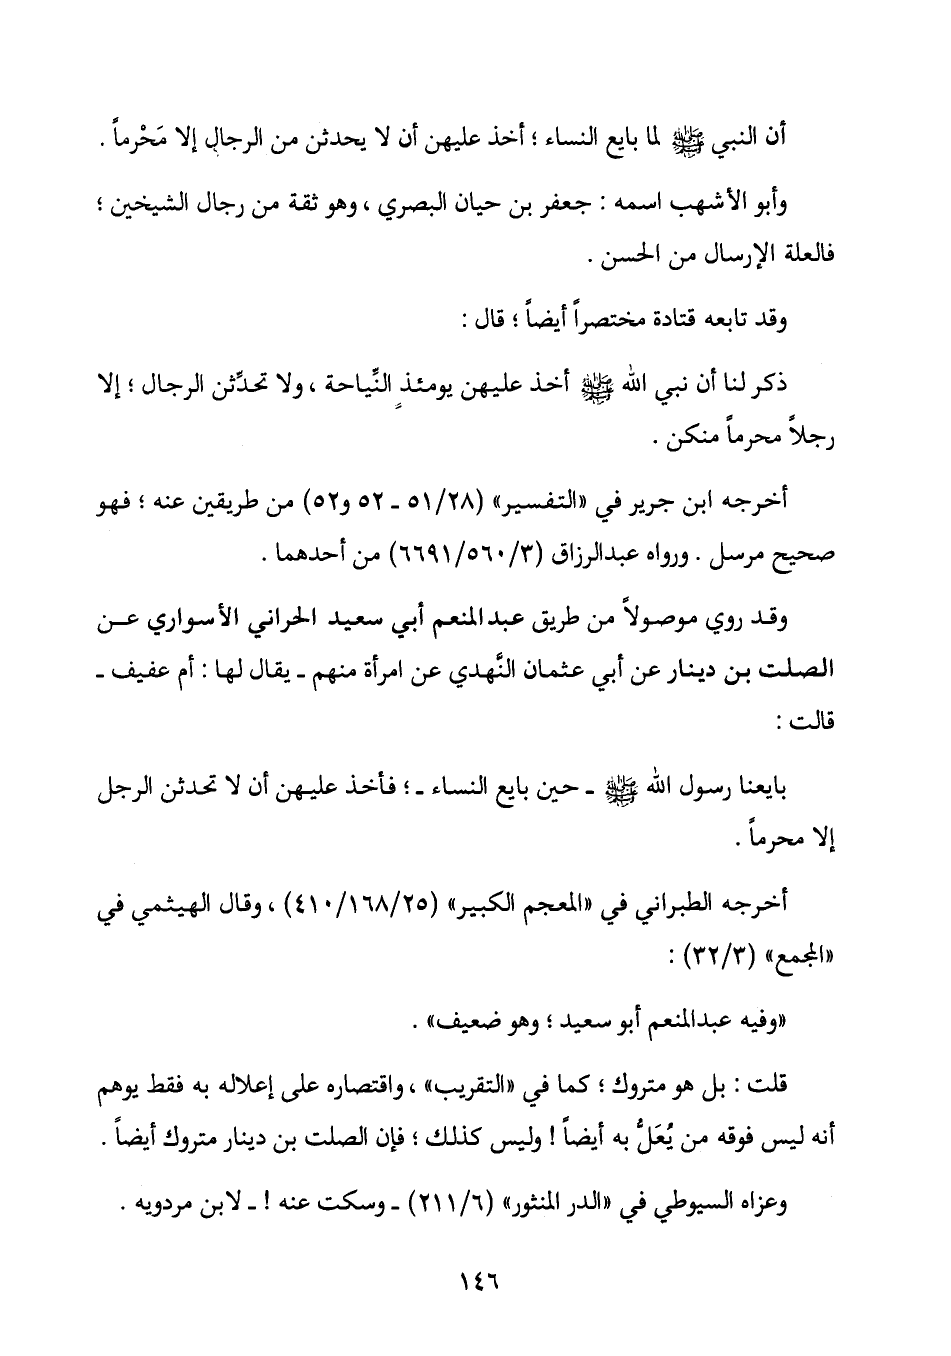 أن النبي ﷺ لما بايع النساء ؛ أخذ عليهن أن لا يحدثن من الرجال إلا مَحْرماً .
وأبو الأشهب اسمه : جعفر بن حيان البصري ، وهو ثقة من رجال الشيخين ؛
فالعلة الإرسال من الحسن .
وقد تابعه قتادة مختصراً أيضاً ؛ قال :
ذكر لنا أن نبي الله ﷺ أخذ عليهن يومئذٍ النِّياحة ، ولا تحدِّثن الرجال ؛ إلا
رجلاً محرماً منكن .
أخرجه ابن جرير في «التفسير» (٢٨/ ٥١ ـ ٥٢ و٥٢) من طريقين عنه ؛ فهو
صحيح مرسل . ورواه عبدالرزاق (٣/ ٥٦٠/ ٦٦٩١) من أحدهما .
وقد روي موصولاً من طريق عبدالمنعم أبي سعيد الحراني الأسواري عن
الصلت بن دينار عن أبي عثمان النَّهدي عن امرأة منهم ـ يقال لها : أم عفيف ـ
قالت :
بايعنا رسول الله ﷺ ـ حين بايع النساء ـ ؛ فأخذ عليهن أن لا تحدثن الرجل
إلا محرماً .
أخرجه الطبراني في «المعجم الكبير» (٢٥/ ١٦٨/ ٤١٠) ، وقال الهيثمي في
«المجمع» (٣/ ٣٢) :
«وفيه عبدالمنعم أبو سعيد ؛ وهو ضعيف» .
قلت : بل هو متروك ؛ كما في «التقريب» ، واقتصاره على إعلاله به فقط يوهم
أنه ليس فوقه من يُعَلُّ به أيضاً ! وليس كذلك ؛ فإن الصلت بن دينار متروك أيضاً .
وعزاه السيوطي في «الدر المنثور» (٦/ ٢١١) ـ وسكت عنه ! ـ لابن مردويه .
١٤٦